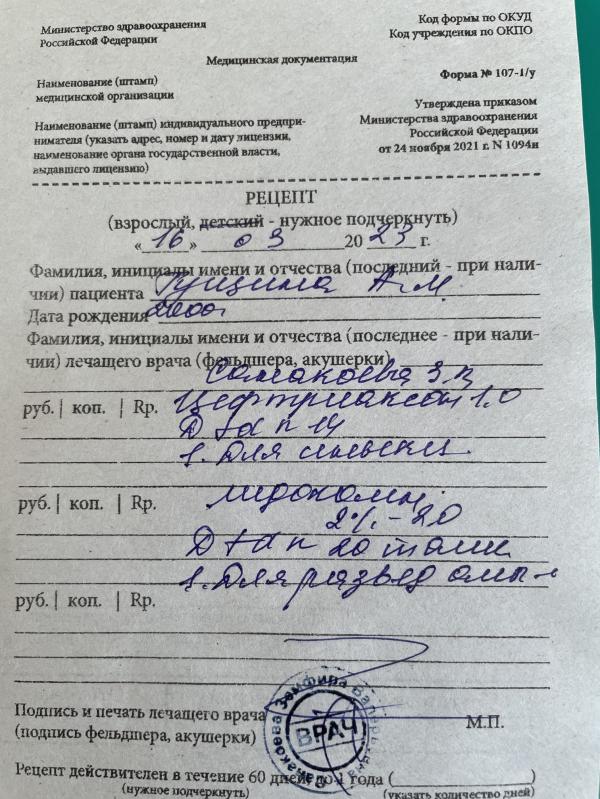 Министерство здравоохранения
Российской Федерации
Код формы по ОКУД
Код учреждения по ОКПО
Медицинская документация
Наименование (штамп)
медицинской организации
Форма № 107-1/у
Наименование (штамп) индивидуального предпри-
нимателя (указать адрес, номер и дату лицензии,
наименование органа государственной власти,
выдавшего лицензию)
Утверждена приказом
Министерства здравоохранения
Российской Федерации
от 24 ноября 2021 г. N 1094н
РЕЦЕПТ
(взрослый, детский - нужное подчеркнуть)
« 16 » 03 20 23 г.
Фамилия, инициалы имени и отчества (последний - при нали-
чии) пациента А.М.
Дата рождения 2000г
Фамилия, инициалы имени и отчества (последнее - при нали-
чии) лечащего врача (фельдшера, акушерки)
З.В
руб. | коп. | Rp. Цефтриаксон 1.0
D t d n 14
S. Для
руб. | коп. | Rp. лидокаин
2% - 2.0
D t d n 20
S. Для
руб. | коп. | Rp.
Земфира
ВРАЧ
Подпись и печать лечащего врача
(подпись фельдшера, акушерки)
М.П.
Рецепт действителен в течение 60 дней, до 1 года (
)
(нужное подчеркнуть)
(указать количество дней)